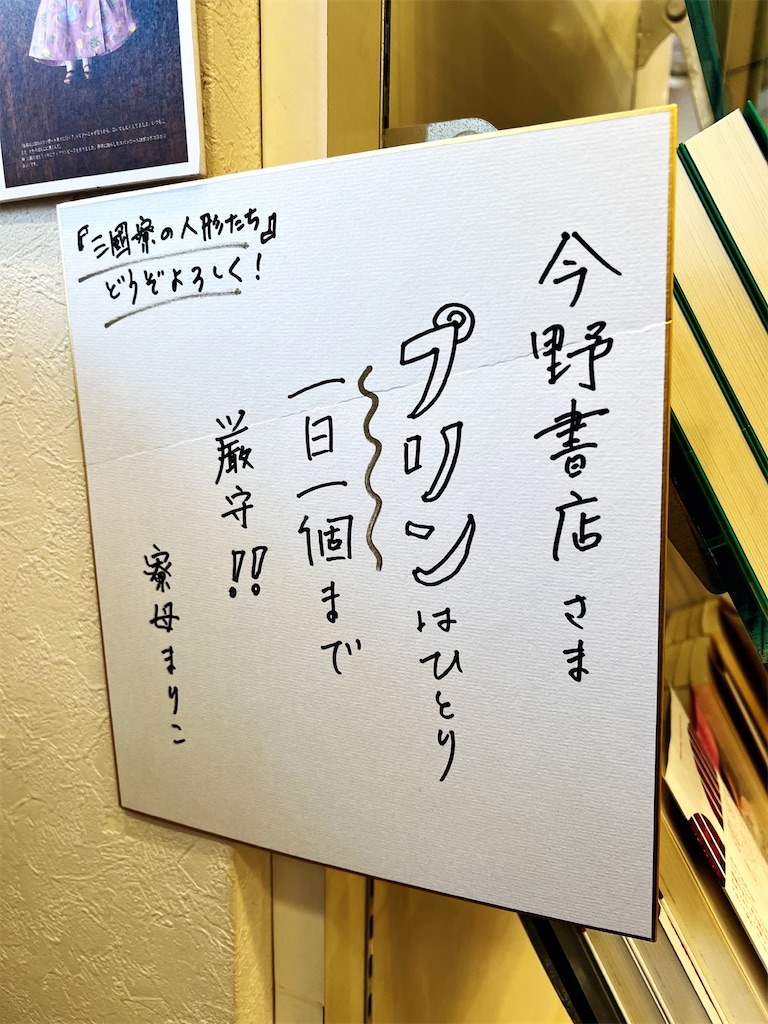 今野書店さま
プリンはひとり
一日一個まで
厳守!!
寮母まりこ
『三國寮の人形たち』
どうぞよろしく!